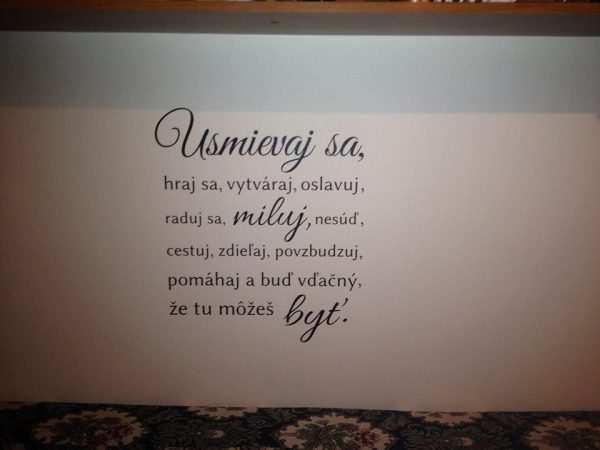 Usmievaj sa,
hraj sa, vytváraj, oslavuj,
raduj sa, miluj, nesúď,
cestuj, zdieľaj, povzbudzuj,
pomáhaj a buď vďačný,
že tu môžeš byť.